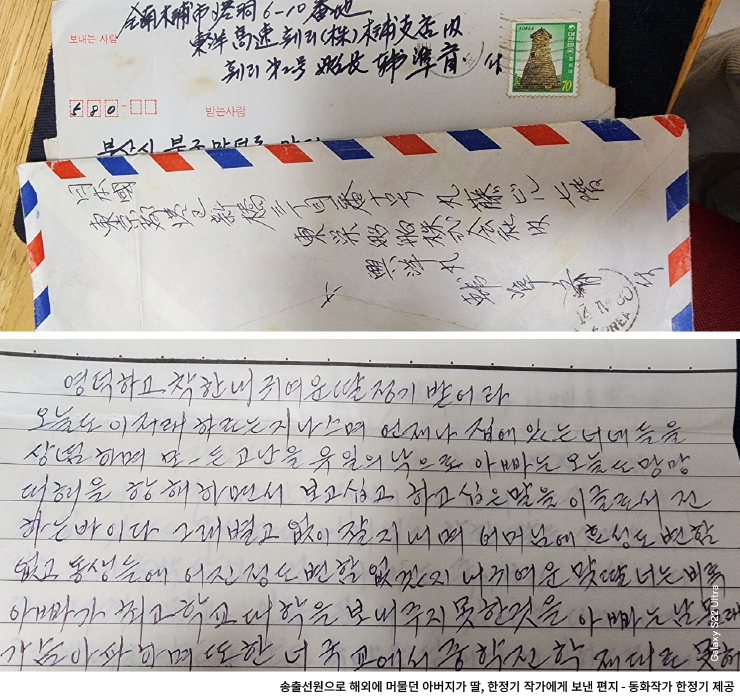 全南木浦市塔洞6-10番地
보내는 사람
東洋高速訓리(株)木浦支店内
訓리 第2号 船長 韓準育
KOREA
대한민국
70
580-
받는사람
부산시 북구 만덕동
日本國
東京都港区新橋三丁目番十号 丸藤ビル七階
東洋船舶株式会社内
興洋丸
韓準育
KOREA
영덕하고 착한 내 귀여운 딸 정기 받어라
오늘도 이저래 하로는 지나스며 언제나 집에 있는 너네들을
상념하며 모-든 고난을 유일의 낙으로 아빠는 오늘도 망망
대해을 항해하면서 보고싶고 하고싶은 말을 이글로서 전
하는바이다 그래 별고 없이 잘 지내며 어머님에 환성도 변함
없고 동생들에 어진 정도 변함 없겠지 내 귀여운 맞딸 너는 비록
아빠가 최고학교 대학을 보내주지 못한것을 아빠는 남
가슴아파하며 또한 너 국교에서 중학진학 제대로 못해
Galaxy S22 Ultra
송출선원으로 해외에 머물던 아버지가 딸, 한정기 작가에게 보낸 편지 - 동화작가 한정기 제공